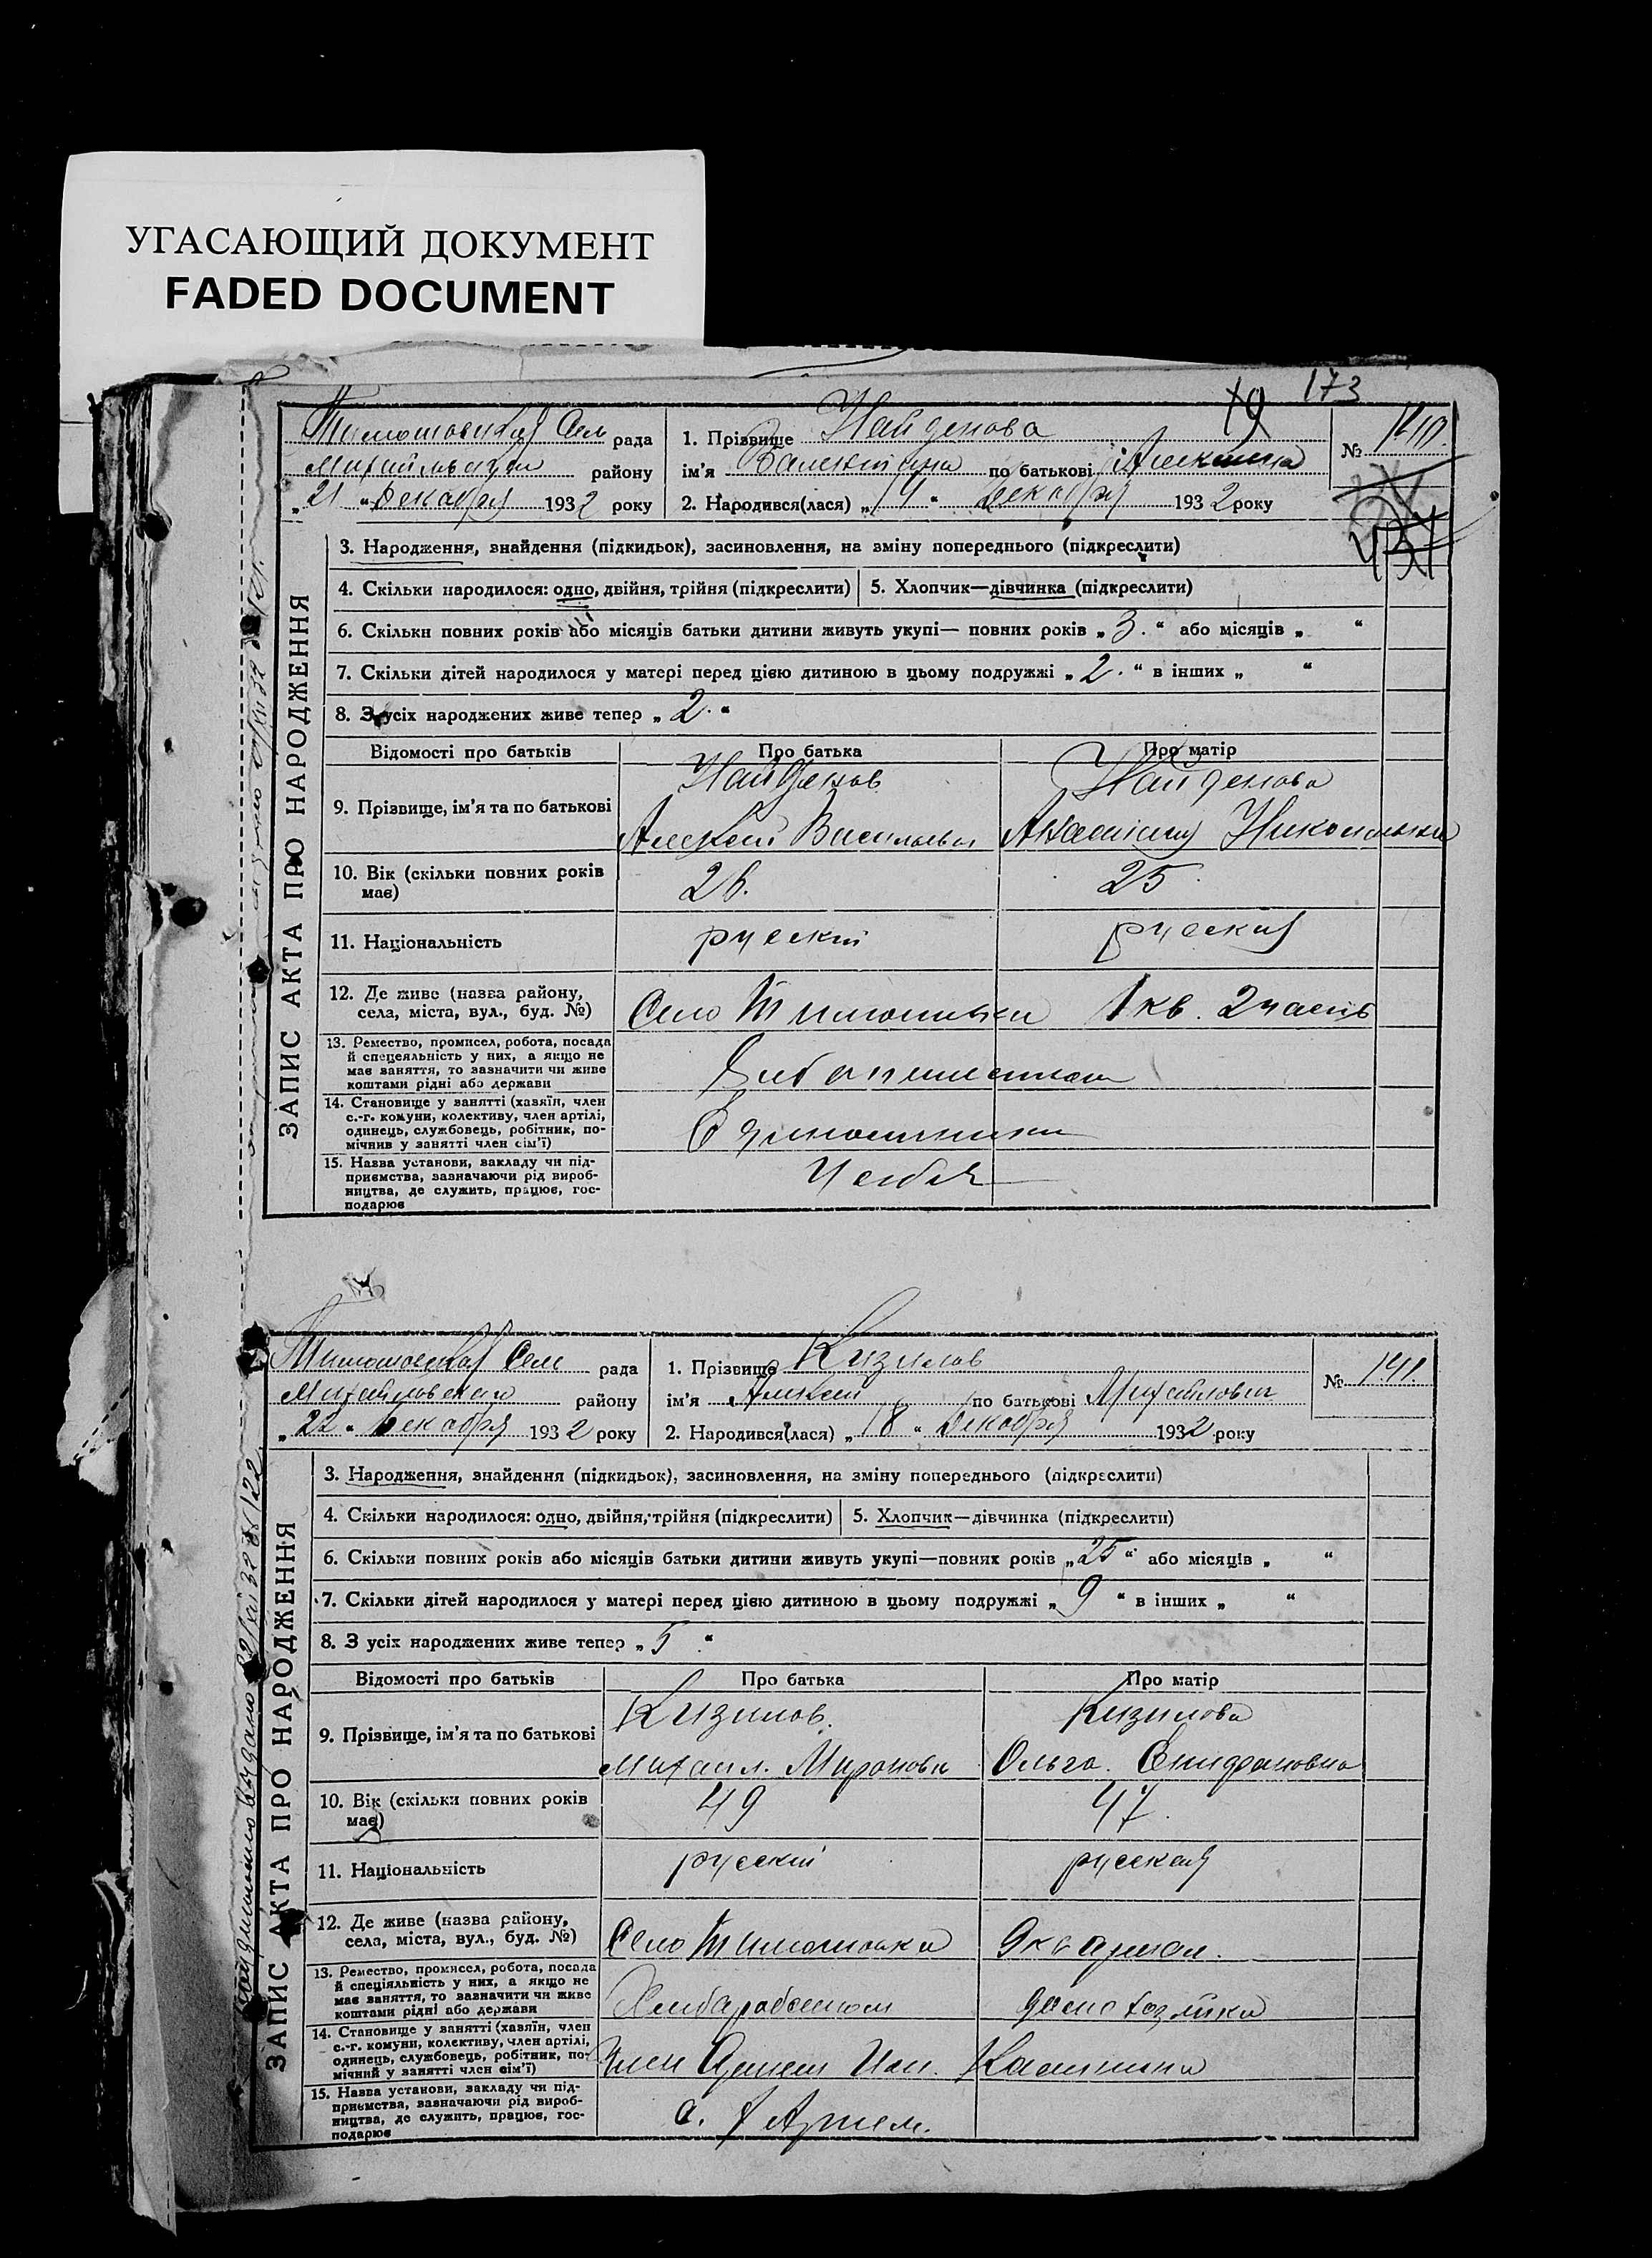 УГАСАЮЩИЙ ДОКУМЕНТ
FADED DOCUMENT
173
Тимошовская Сел рада
Михайловского району
„21“ Декабря 1932 року
1. Прізвище Найденова
ім'я Валентина по батькові Алексеевна
2. Народився(лася) „14“ Декабря 1932 року
№ 140.
ЗАПИС АКТА ПРО НАРОДЖЕННЯ
3. Народження, знайдення (підкидьок), засиновлення, на зміну попереднього (підкреслити)
4. Скільки народилося: одно, двійня, трійня (підкреслити)
5. Хлопчик—дівчинка (підкреслити)
6. Скільки повних років або місяців батьки дитини живуть укупі— повних років „3.“ або місяців „ “
7. Скільки дітей народилося у матері перед цією дитиною в цьому подружжі „2.“ в інших „ “
8. З усіх народжених живе тепер „2.“
Відомості про батьків Про батька Про матір
9. Прізвище, ім'я та по батькові
Найденов Найденова
Алексей Васильев Анастасия Николаевна
10. Вік (скільки повних років має) 26. 25
11. Національність русский русская
12. Де живе (назва району, села, міста, вул., буд. №) Село Тимошовка 1 кв. 2 часть
13. Ремество, промисел, робота, посада й спецеяльність у них, а якщо не має заняття, то зазначити чи живе коштами рідні або держави
14. Становище у занятті (хазяїн, член с.-г. комуни, колективу, член артілі, одинець, службовець, робітник, помічник у занятті член сім'ї)
15. Назва установи, закладу чи підприємства, зазначаючи рід виробництва, де служить, працює, господарює
У себя
Тимошовская Сел рада
Михайловского району
„22“ Декабря 1932 року
1. Прізвище Кизилов
ім'я Алексей по батькові Михайлович
2. Народився(лася) „18“ Декабря 1932 року
№ 141.
ЗАПИС АКТА ПРО НАРОДЖЕННЯ
3. Народження, знайдення (підкидьок), засиновлення, на зміну попереднього (підкреслити)
4. Скільки народилося: одно, двійня, трійня (підкреслити)
5. Хлопчик—дівчинка (підкреслити)
6. Скільки повних років або місяців батьки дитини живуть укупі—повних років „25“ або місяців „ “
7. Скільки дітей народилося у матері перед цією дитиною в цьому подружжі „9“ в інших „ “
8. З усіх народжених живе тепер „5“
Відомості про батьків Про батька Про матір
9. Прізвище, ім'я та по батькові
Кизилов. Кизилова
Михаил. Миронович Ольга.
10. Вік (скільки повних років має) 49 47.
11. Національність русский русская
12. Де живе (назва району, села, міста, вул., буд. №) Село Тимошовка 9 кв
13. Ремество, промисел, робота, посада й спеціяльність у них, а якщо не має заняття, то зазначити чи живе коштами рідні або держави
домохозяйка
14. Становище у занятті (хазяїн, член с.-г. комуни, колективу, член артілі, одинець, службовець, робітник, помічний у занятті член сім'ї)
Член Артели Им. Калинина
15. Назва установи, закладу чи підприємства, зазначаючи рід виробництва, де служить, працює, господарює
с. х Артель.